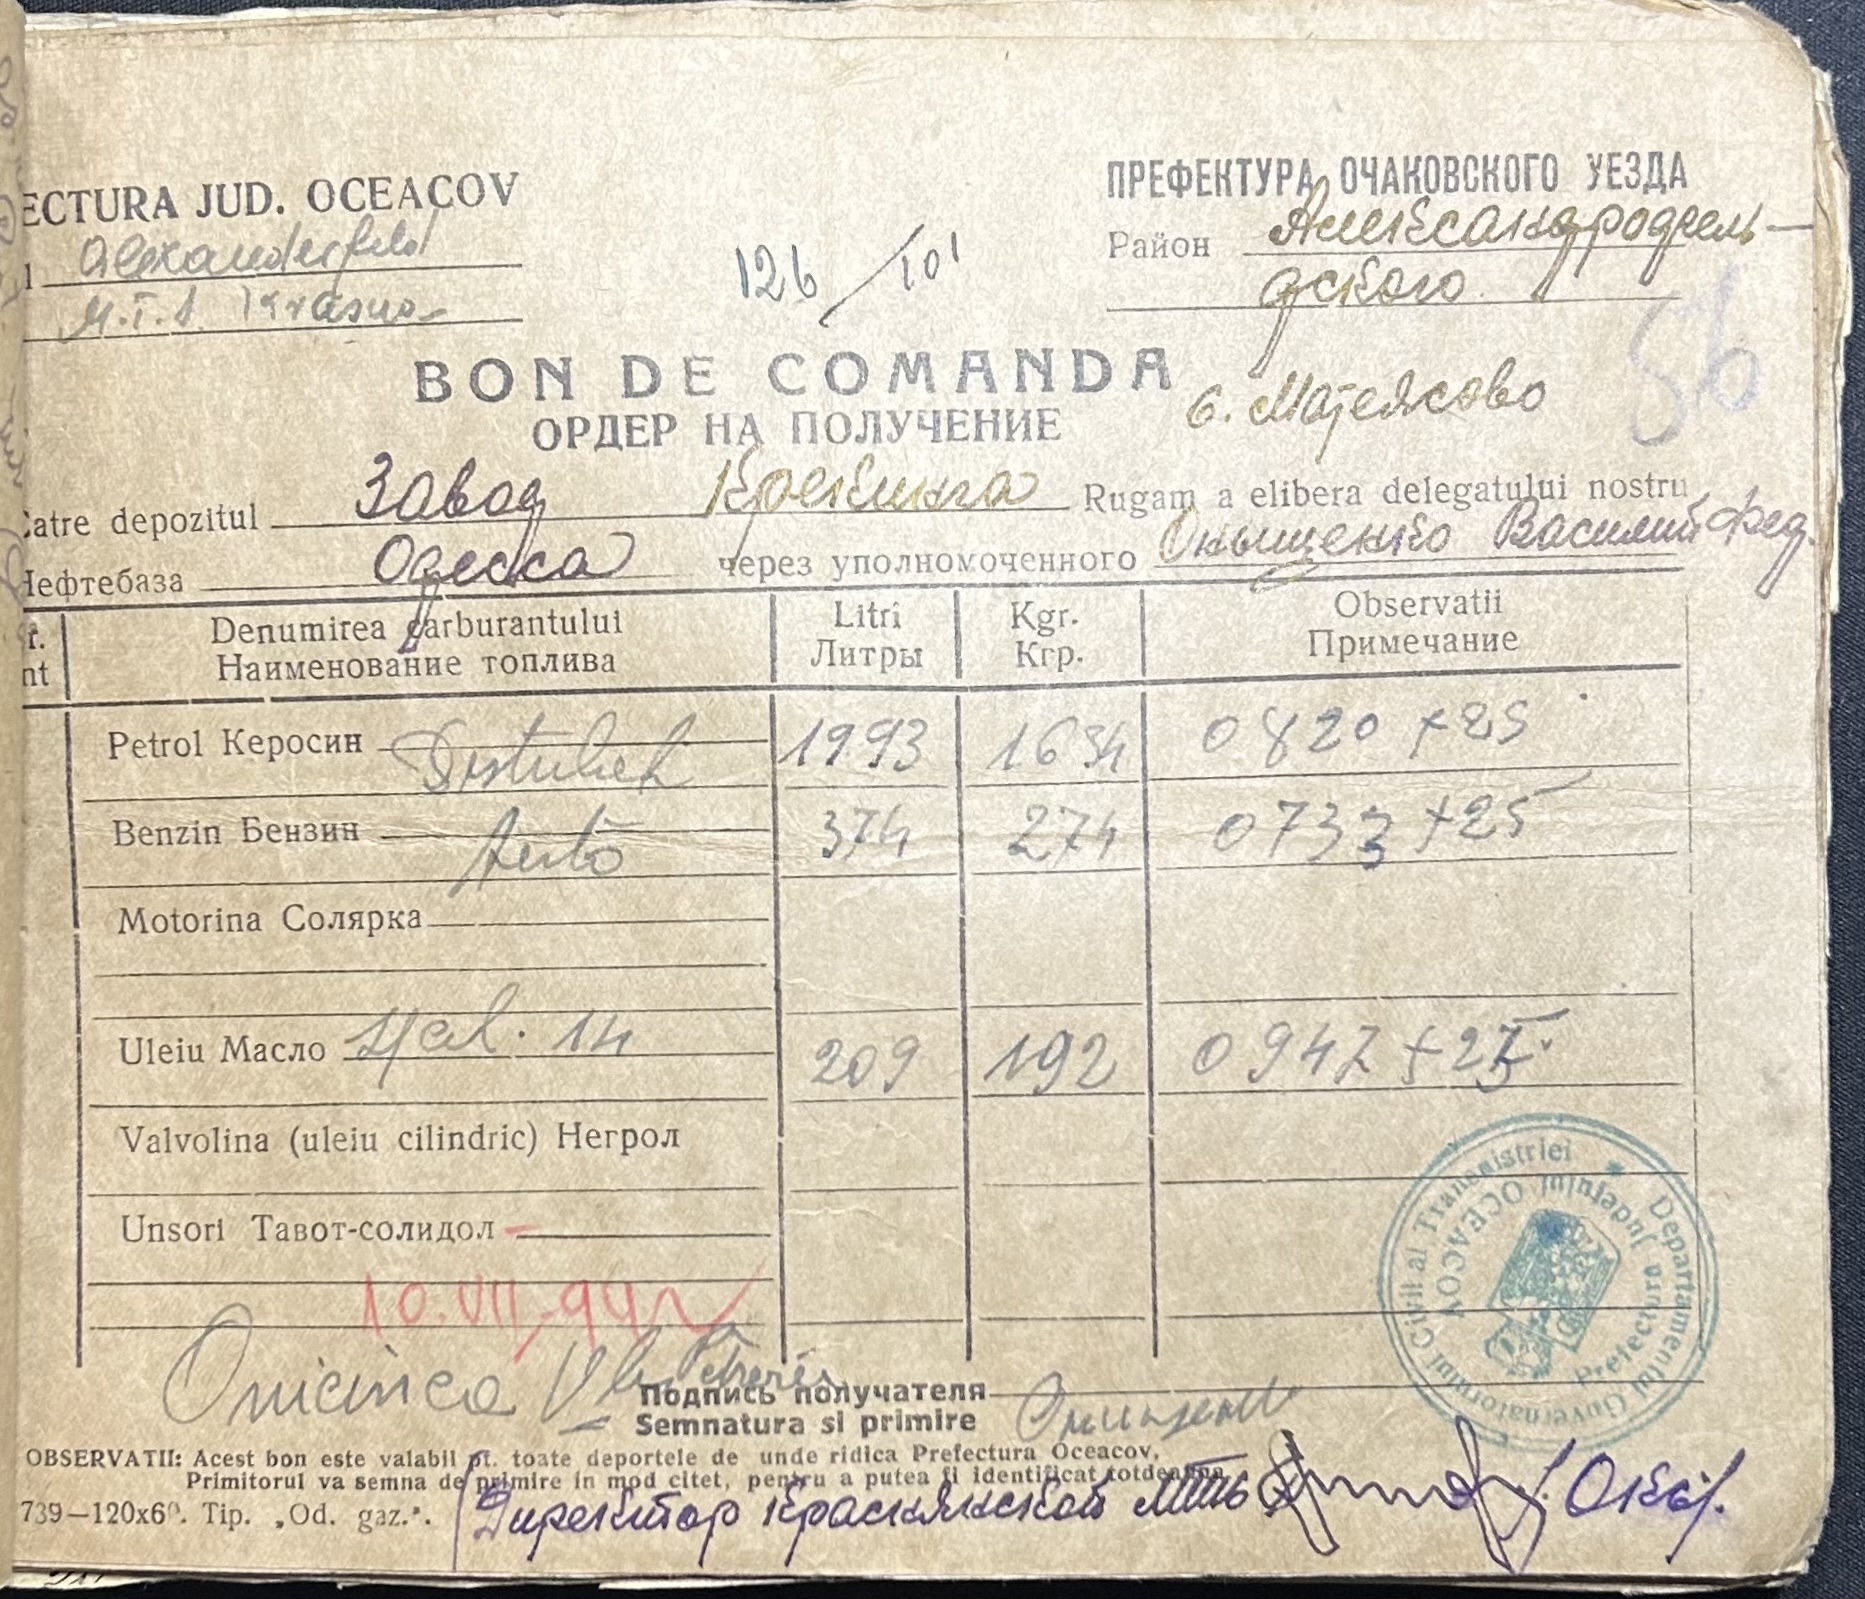 ECTURA JUD. OCEACOV
ПРЕФЕКТУРА ОЧАКОВСКОГО УЕЗДА
Alexanderfeld
Район Александрофель-
M.T.S. Krasna
126/101
дского
56
BON DE COMANDA
ОРДЕР НА ПОЛУЧЕНИЕ
с. Матеясово
Catre depozitul Завод Крекинга Rugam a elibera delegatului nostru
Нефтебаза Одесса через уполномоченного Онищенко Василий Фед.
r. Denumirea carburantului Litri Kgr. Observatii
nt Наименование топлива Литры Кгр. Примечание
Petrol Керосин 1993 1634 0820 +25
Benzin Бензин Auto 374 274 0733 +25
Motorina Солярка
Uleiu Масло 14 209 192 0947
Valvolina (uleiu cilindric) Негрол
Unsori Тавот-солидол
10.VII.942
Подпись получателя
Semnatura si primire
OBSERVATII: Acest bon este valabil pt. toate deportele de unde ridica Prefectura Oceacov,
Primitorul va semna de primire in mod citet, pentru a putea fi identificat totdeauna
739—120x60. Tip. „Od. gaz.".
Директор Краснянской МТС
Guvernatorul Civil al Transnistriei * Departamentul
Prefectura Judeţului OCEACOV